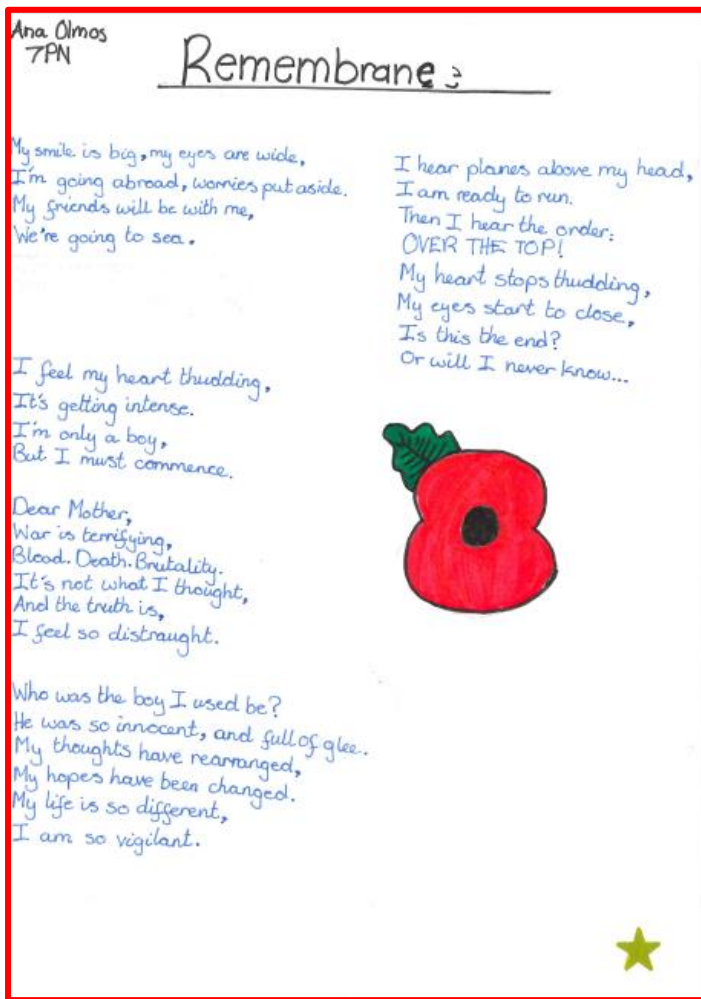 Ana Olmos
7PN
Remembrane :
My smile is big, my eyes are wide,
I'm going abroad, worries put aside.
My friends will be with me,
We're going to sea.
I feel my heart thudding,
It's getting intense.
I'm only a boy,
But I must commence.
Dear Mother,
War is terrifying,
Blood. Death. Brutality.
It's not what I thought,
And the truth is,
I feel so distraught.
Who was the boy I used be?
He was so innocent, and full of glee.
My thoughts have rearranged,
My hopes have been changed.
My life is so different,
I am so vigilant.
I hear planes above my head,
I am ready to run.
Then I hear the order:
OVER THE TOP!
My heart stops thudding,
My eyes start to close,
Is this the end?
Or will I never know...